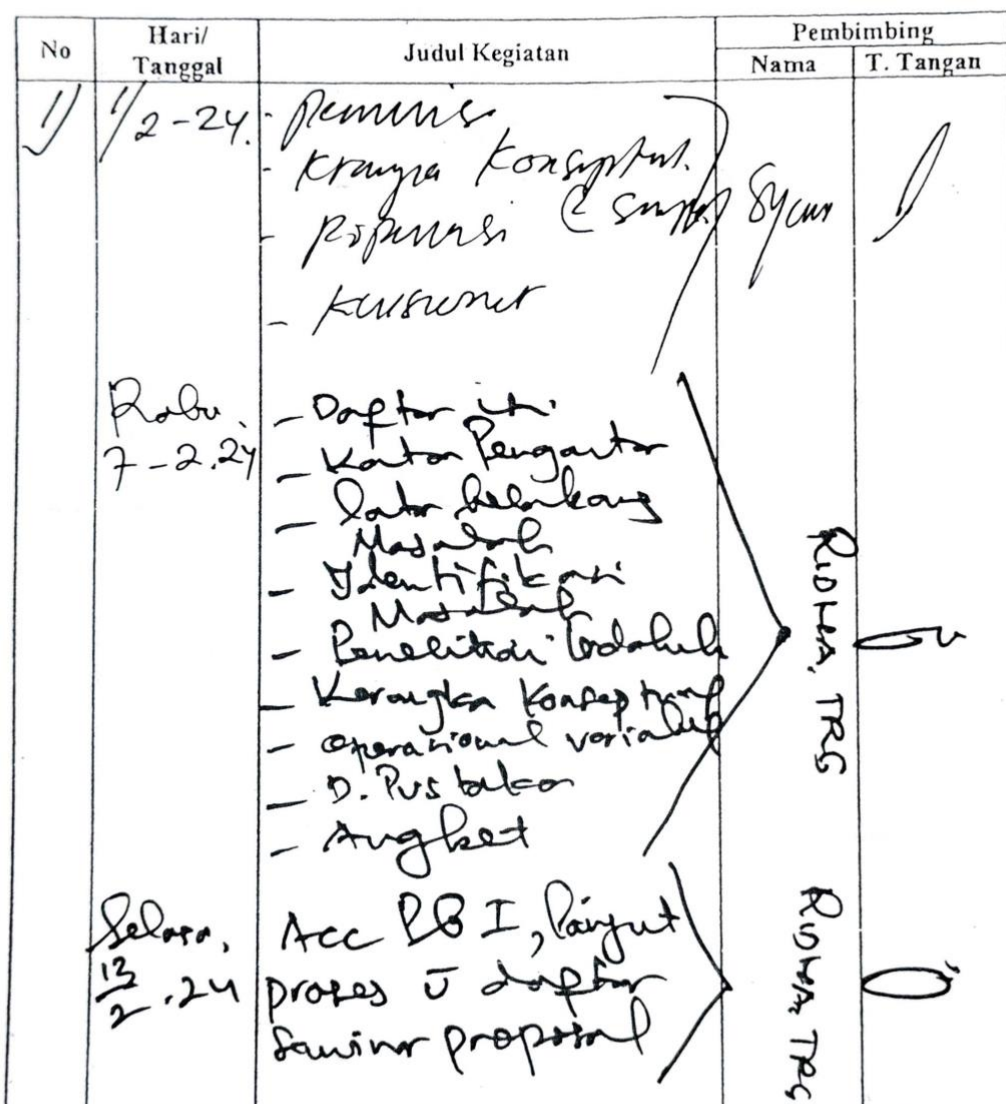 No Hari/ Tanggal Judul Kegiatan Pembimbing
Nama T. Tangan
1) 1/2-24. - Penulisan
- Krangka Konseptual.
- Populasi & Sampel
- Kuisioner
Rabu,
7-2.24
- Daftar isi
- Kata Pengantar
- Latar belakang
Masalah
- Identifikasi
Masalah
- Penelitian Terdahulu
- Kerangka Konseptual
- Operasional variabel
- D. Pustaka
- Angket
RIDHA, TRG
Selasa,
13/2.24
Acc PB I, lanjut
proses U daftar
Seminar proposal
RIDHA, TRG